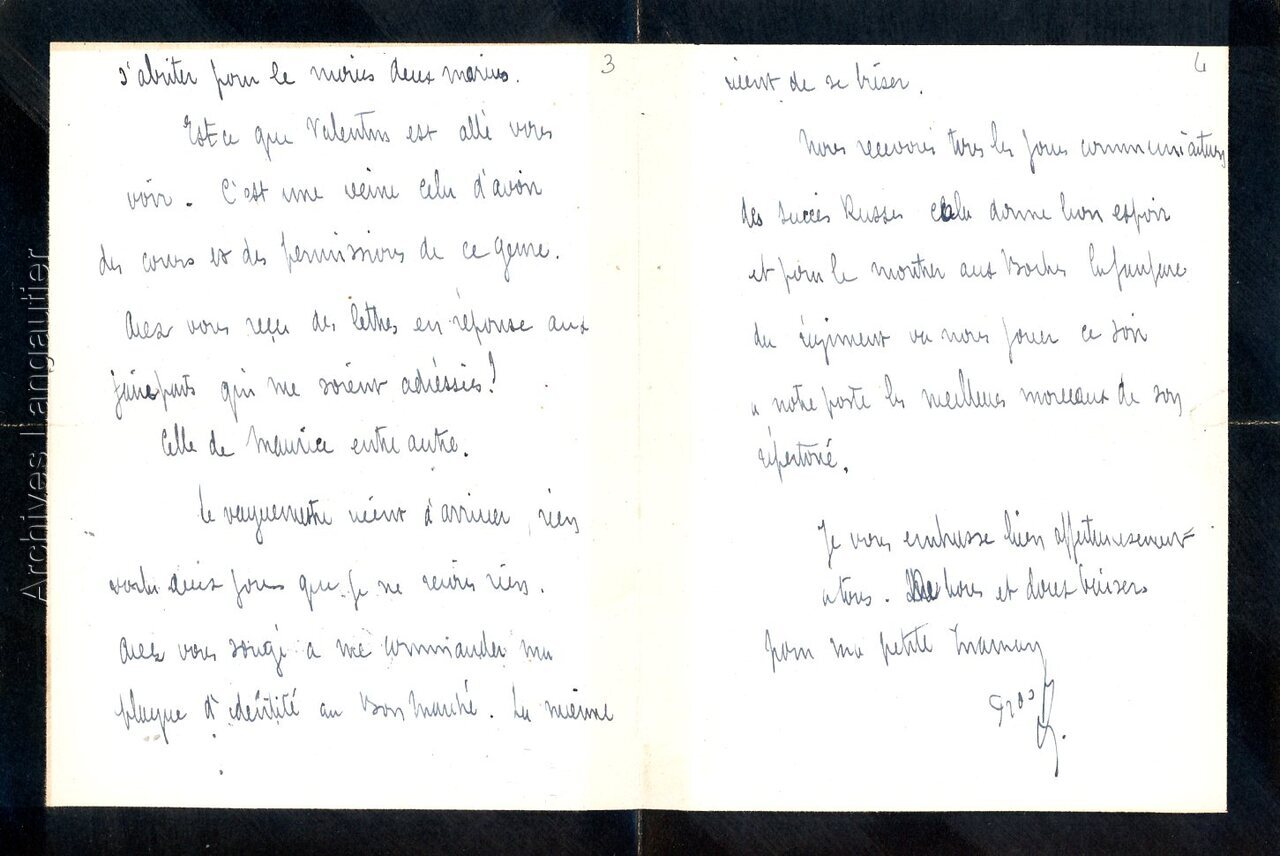 3
s'abriter pour le moins deux marins.
Est ce que Valentin est allé vous
voir. C'est une veine celu d'avoir
des cours et des permissions de ce genre.
Avez vous reçu des lettres en réponse aux
faireparts qui me soient adressées!
Celle de Maurice entre autre.
Le vaguemestre vient d'arriver, rien
voila deux jours que je ne reçois rien.
Avez vous songé a me commander ma
plaque d'identité au Bon Marché. La mienne
4
vient de se briser.
Nous recevons tous les jours communications
des succès Russes cela donne bon espoir
et pour le montrer aux Boches la fanfare
du régiment va nous jouer ce soir
a notre poste les meilleurs morceaux de son
répertoire.
Je vous embrasse bien affectueusement
a tous. De bons et doux baisers
pour ma petite Maman
Archives Langautier